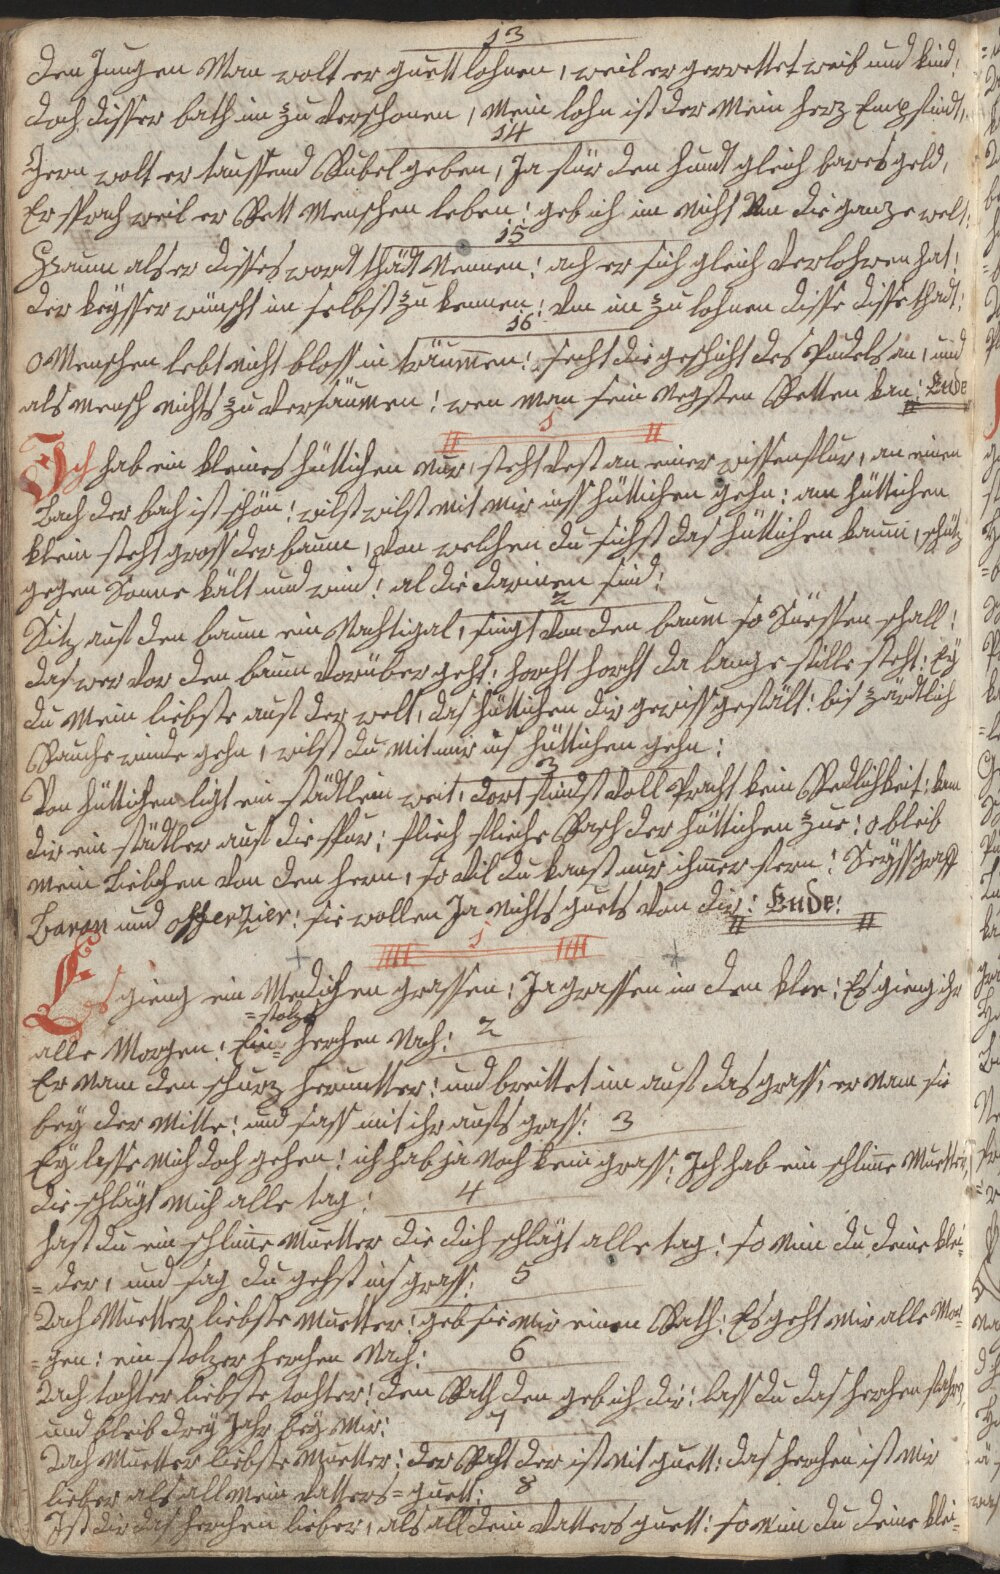 13
Den Jungen Man wolt er guett lohnen, weil er gerettet weib und kind!
doch disser bath im zu verschonen, Mein lohn ist der Mein herz Empfindt,
14
Gern wolt er taussend Rubel geben, Ja für den hundt gleich bares geld,
Er sprach weil er Rett Menschen leben! geb ich im nicht Um die ganze welt:
15
Kaum als er disses wort thädt Nennen! ach er sich gleich verlohren hat!
der keysser wünscht im selbst zu kennen! Um im zu lohnen disse disse thadt!
16
O Menschen lebt nicht bloss in träummen! secht die geschicht des Pudels an, und
als mensch nichts zu versäumen! wen man sein negsten Retten kan! Ende
1
Ich hab ein kleines hüttichen nur, steht vest an einer wissenflur, an einen
bach der bach ist schön! wilst wilst mit mir inss hüttichen gehn! am hüttichen
klein steht gross der baum, von welchen du sichst das hüttichen kaum, schützt
gegen Sonne kält und wind! al die darinen sind!
2
Sitz auf den baum ein Nachtigal, singt von den baum so Süessen schall!
das wer vor den baum vorüber geht! horcht horcht da lange stille steht! Ey
du Mein liebste auf der welt, das hüttichen dir gewiss gefält! bis zärtlich
Rauche winde gehn, wilst du mit mir ins hüttichen gehn!
3
Von hüttichen ligt ein städtlein weit, dort findst voll Pracht kein Redlichkeit! kam
dir ein städtler auf die spur! flieh fliehe Rasch der hüttichen zue! o bleib
mein Liebchen von den hern, so vil du kanst nur ihmer fern! Seyss graff
Baron und offerzier! sie wollen Ja nichts guets von dir! Ende!
1
Es gieng ein Medichen grassen! Ja grassen in den klee! Es gieng ihr
=stolzes
alle Morgen! Ein= herchen Nach! 2
Er Nam den schurz heruntter! und breittet im auf das grass, er Nam sie
bey der Mitte! und sass mit ihr aufs grass! 3
Ey lasse mich doch gehen! ich hab ja noch kein grass! Ich hab ein schlime Muetter,
die schlägt mich alle tag! 4
hast du ein schlime Muetter die dich schlägt alle tag! so nim du deine klei=
=der, und sag du gehst ins grass! 5
Zach Muetter liebste Muetter! geb sie mir einen Rath! Es geht mir alle Mor=
=gen! ein stolzer herchen Nach! 6
Zach tochter liebste tochter! den Rath den geb ich dir! lass du das herchen fahren,
und bleib drey Jahr bey mir! 7
Zach Muetter liebste Muetter! der Raht der ist nit guett! das herchen ist mir
lieber als all mein vatters=guett! 8
Ist dir das herchen lieber, als all dein vatters guett! so nim du deine klei=